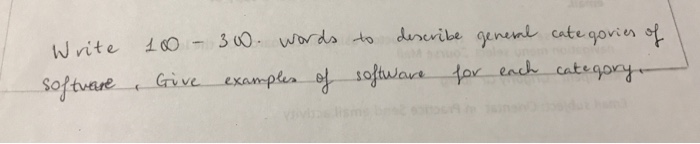 Write 100 - 300. words to describe general categories of
software, Give examples of software for each category.